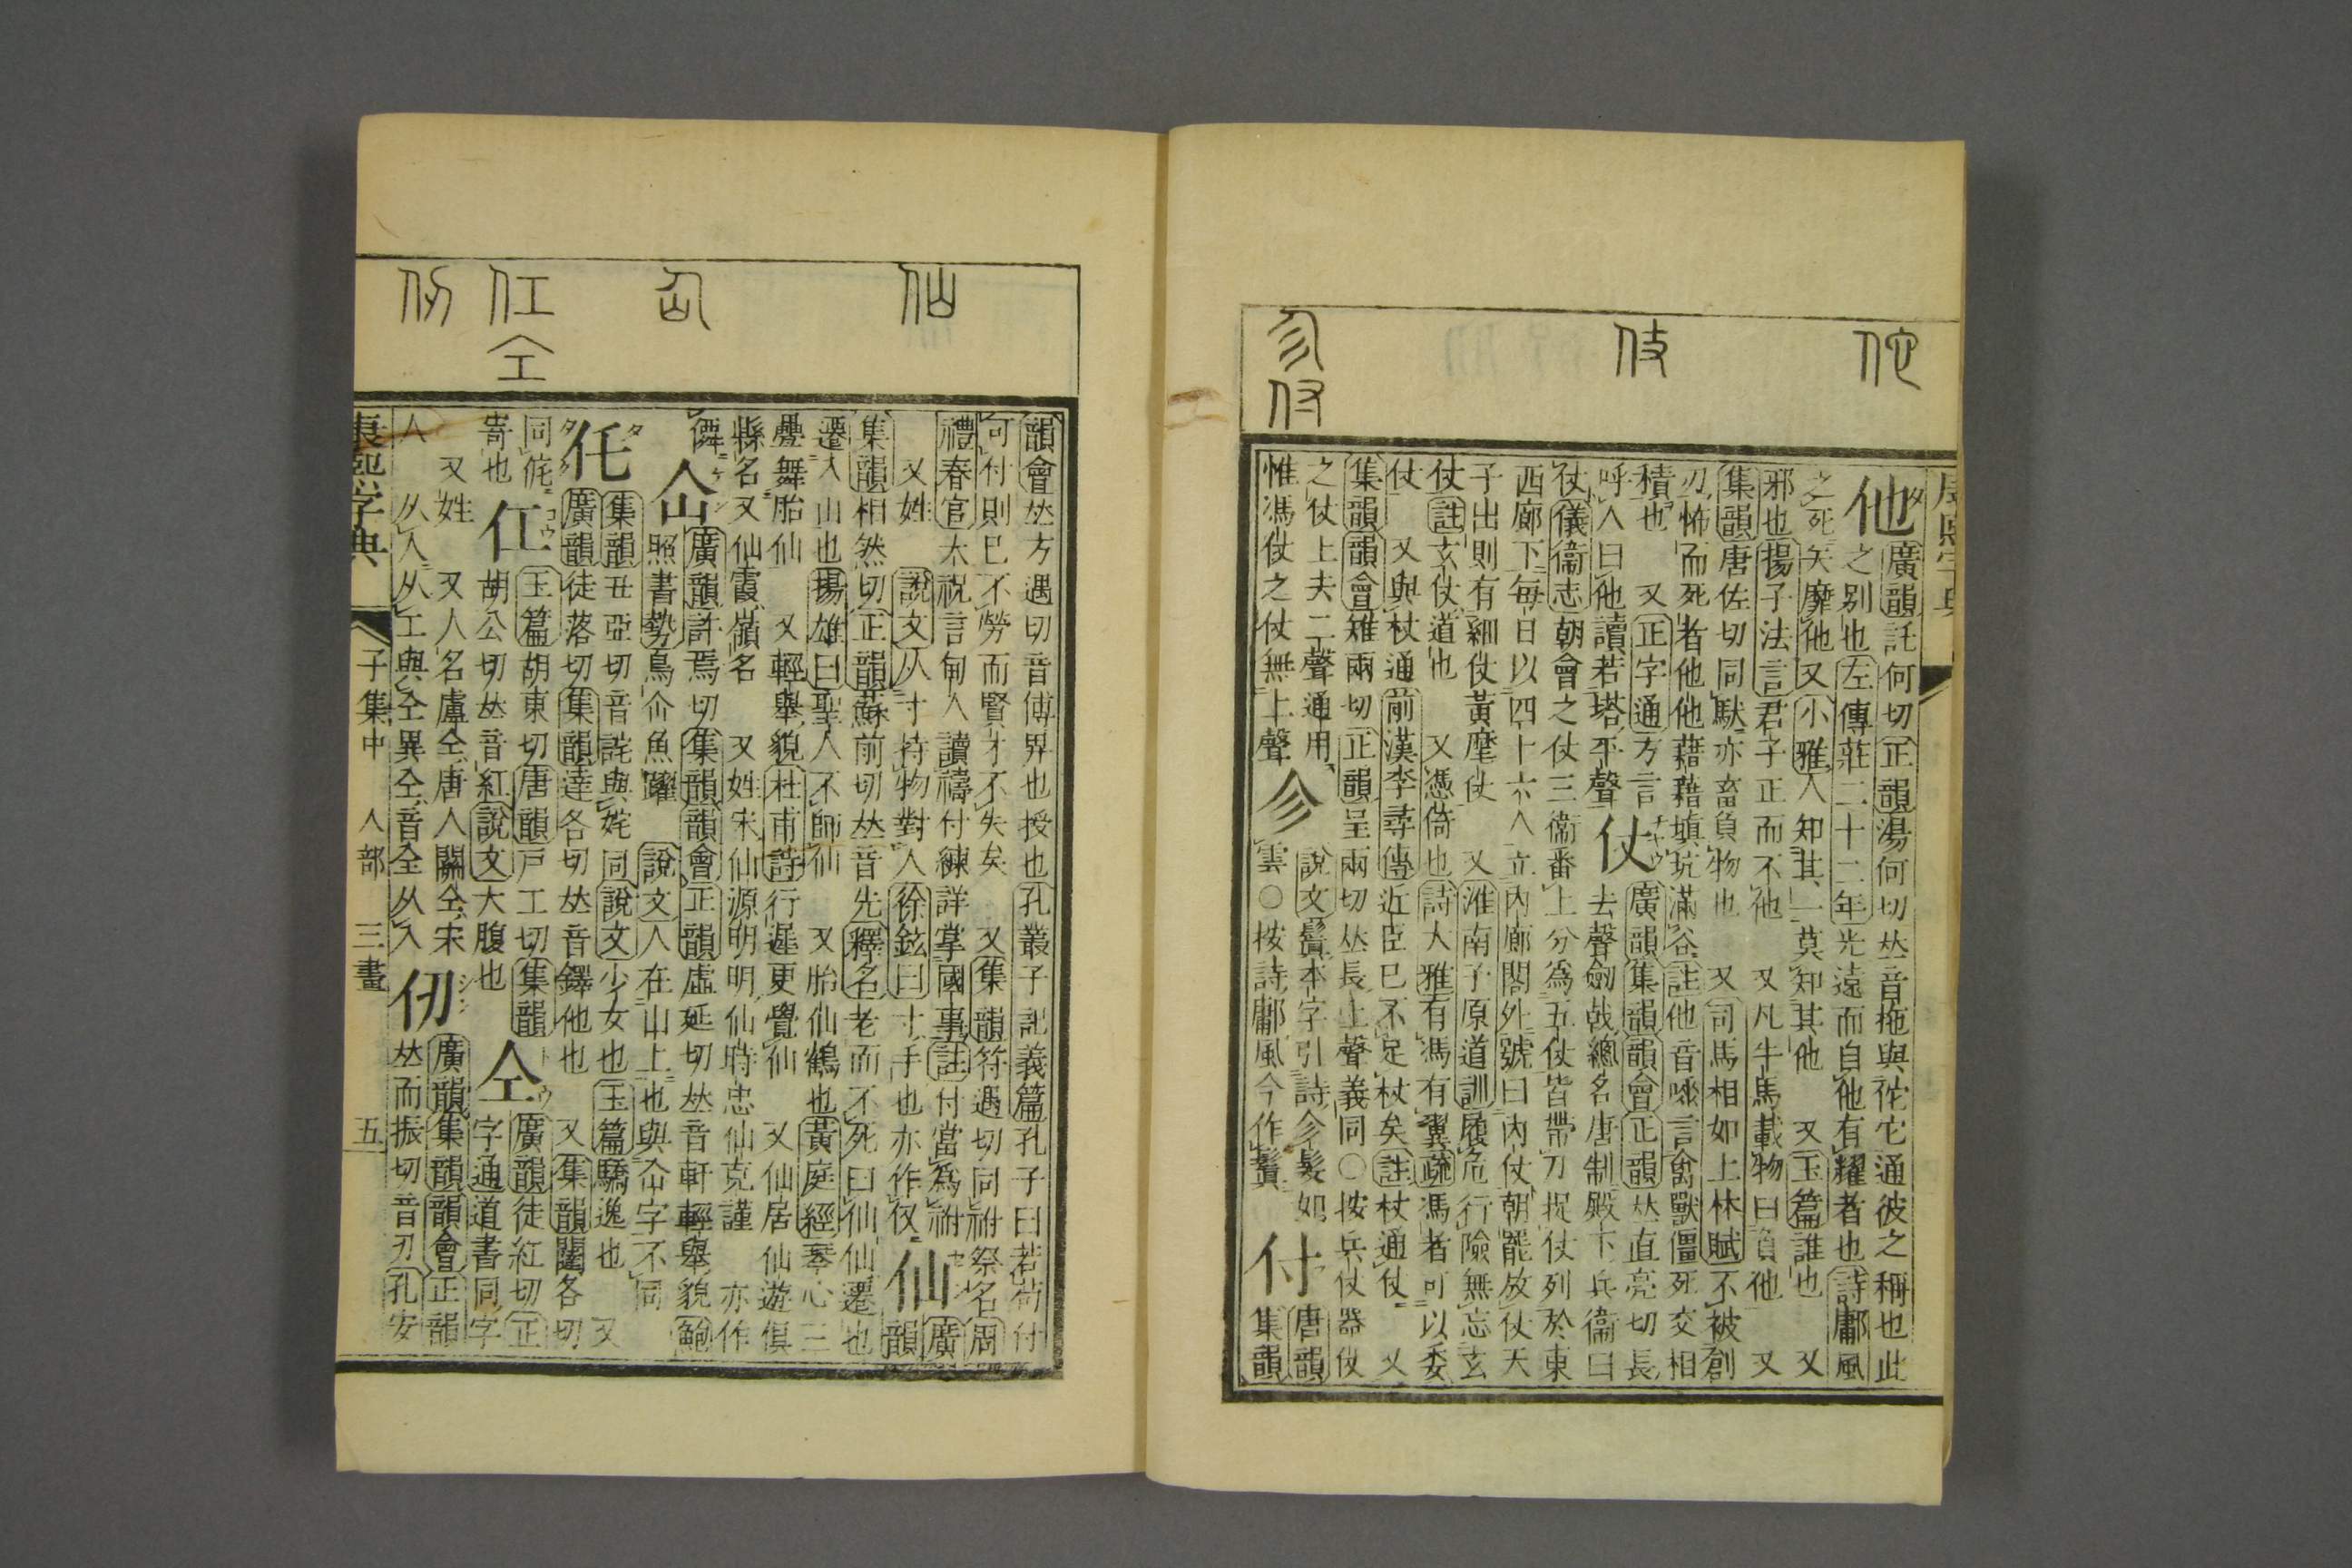 他
廣韻託何切正韻湯何切𠀤音拖與佗它通彼之稱也此
之別也左傳莊二十二年光遠而自他有耀者也詩鄘風
之死矢靡他又小雅人知其一莫知其他 又玉篇誰也 又
邪也揚子法言君子正而不他 又凡牛馬載物曰負他 又
集韻唐佐切同馱亦畜負物也 又司馬相如上林賦不被創
刃怖而死者他他藉藉塡坑滿谷註他音𠴲言禽獸僵死交相
積也 又正字通方言
呼人曰他讀若塔平聲
仗
廣韻集韻韻會正韻𠀤直亮切長
去聲劒戟總名唐制殿下兵衞曰
仗儀衞志朝會之仗三衞番上分爲五仗皆帶刀捉仗列於東
西廊下每日以四十六人立內廊閤外號曰內仗朝罷放仗天
子出則有細仗黃麾仗 又淮南子原道訓履危行險無忘玄
仗註玄仗道也 又憑倚也詩大雅有馮有翼疏馮者可以委
仗 又與杖通前漢李尋傳近臣已不足杖矣註杖通仗 又
集韻韻會雉兩切正韻呈兩切𠀤長上聲義同○按兵仗器仗
之仗上去二聲通用
惟馮仗之仗無上聲
㐱
說文鬒本字引詩㐱髮如
雲○按詩鄘風今作鬒
付
唐韻
集韻
韻會𠀤方遇切音傅畀也授也孔叢子記義篇孔子曰若苟付
可付則已不勞而賢才不失矣 又集韻符遇切同祔祭名周
禮春官大祝言甸人讀禱付練詳掌國事註付當爲祔
又姓 說文从寸持物對人徐鉉曰寸手也亦作仅
仙
廣
韻
集韻相然切正韻蘇前切𠀤音先釋名老而不死曰仙仙遷也
遷入山也揚雄曰聖人不師仙 又胎仙鶴也黃庭經琴心三
疊舞胎仙 又輕舉貌杜甫詩行遲更覺仙 又仙居仙遊俱
縣名又仙霞嶺名 又姓宋仙源明明仙時忠仙克謹 亦作
僊
仚
廣韻許焉切集韻韻會正韻虛延切𠀤音軒輕舉貌鮑
照書勢鳥仚魚躍 說文人在山上也與仙字不同
仛
集韻丑亞切音詫與奼同說文少女也玉篇驕逸也 又
廣韻徒落切集韻達各切𠀤音鐸他也 又集韻闥各切
同侂
寄也
仜
玉篇胡東切唐韻戸工切集韻
胡公切𠀤音紅說文大腹也
仝
廣韻徒紅切正
字通道書同字
又姓 又人名盧仝唐人關仝宋
人 从人从工與全異全音全从入
仞
廣韻集韻韻會正韻
𠀤而振切音刃孔安
康熙字典 子集中 人部 三畫 五